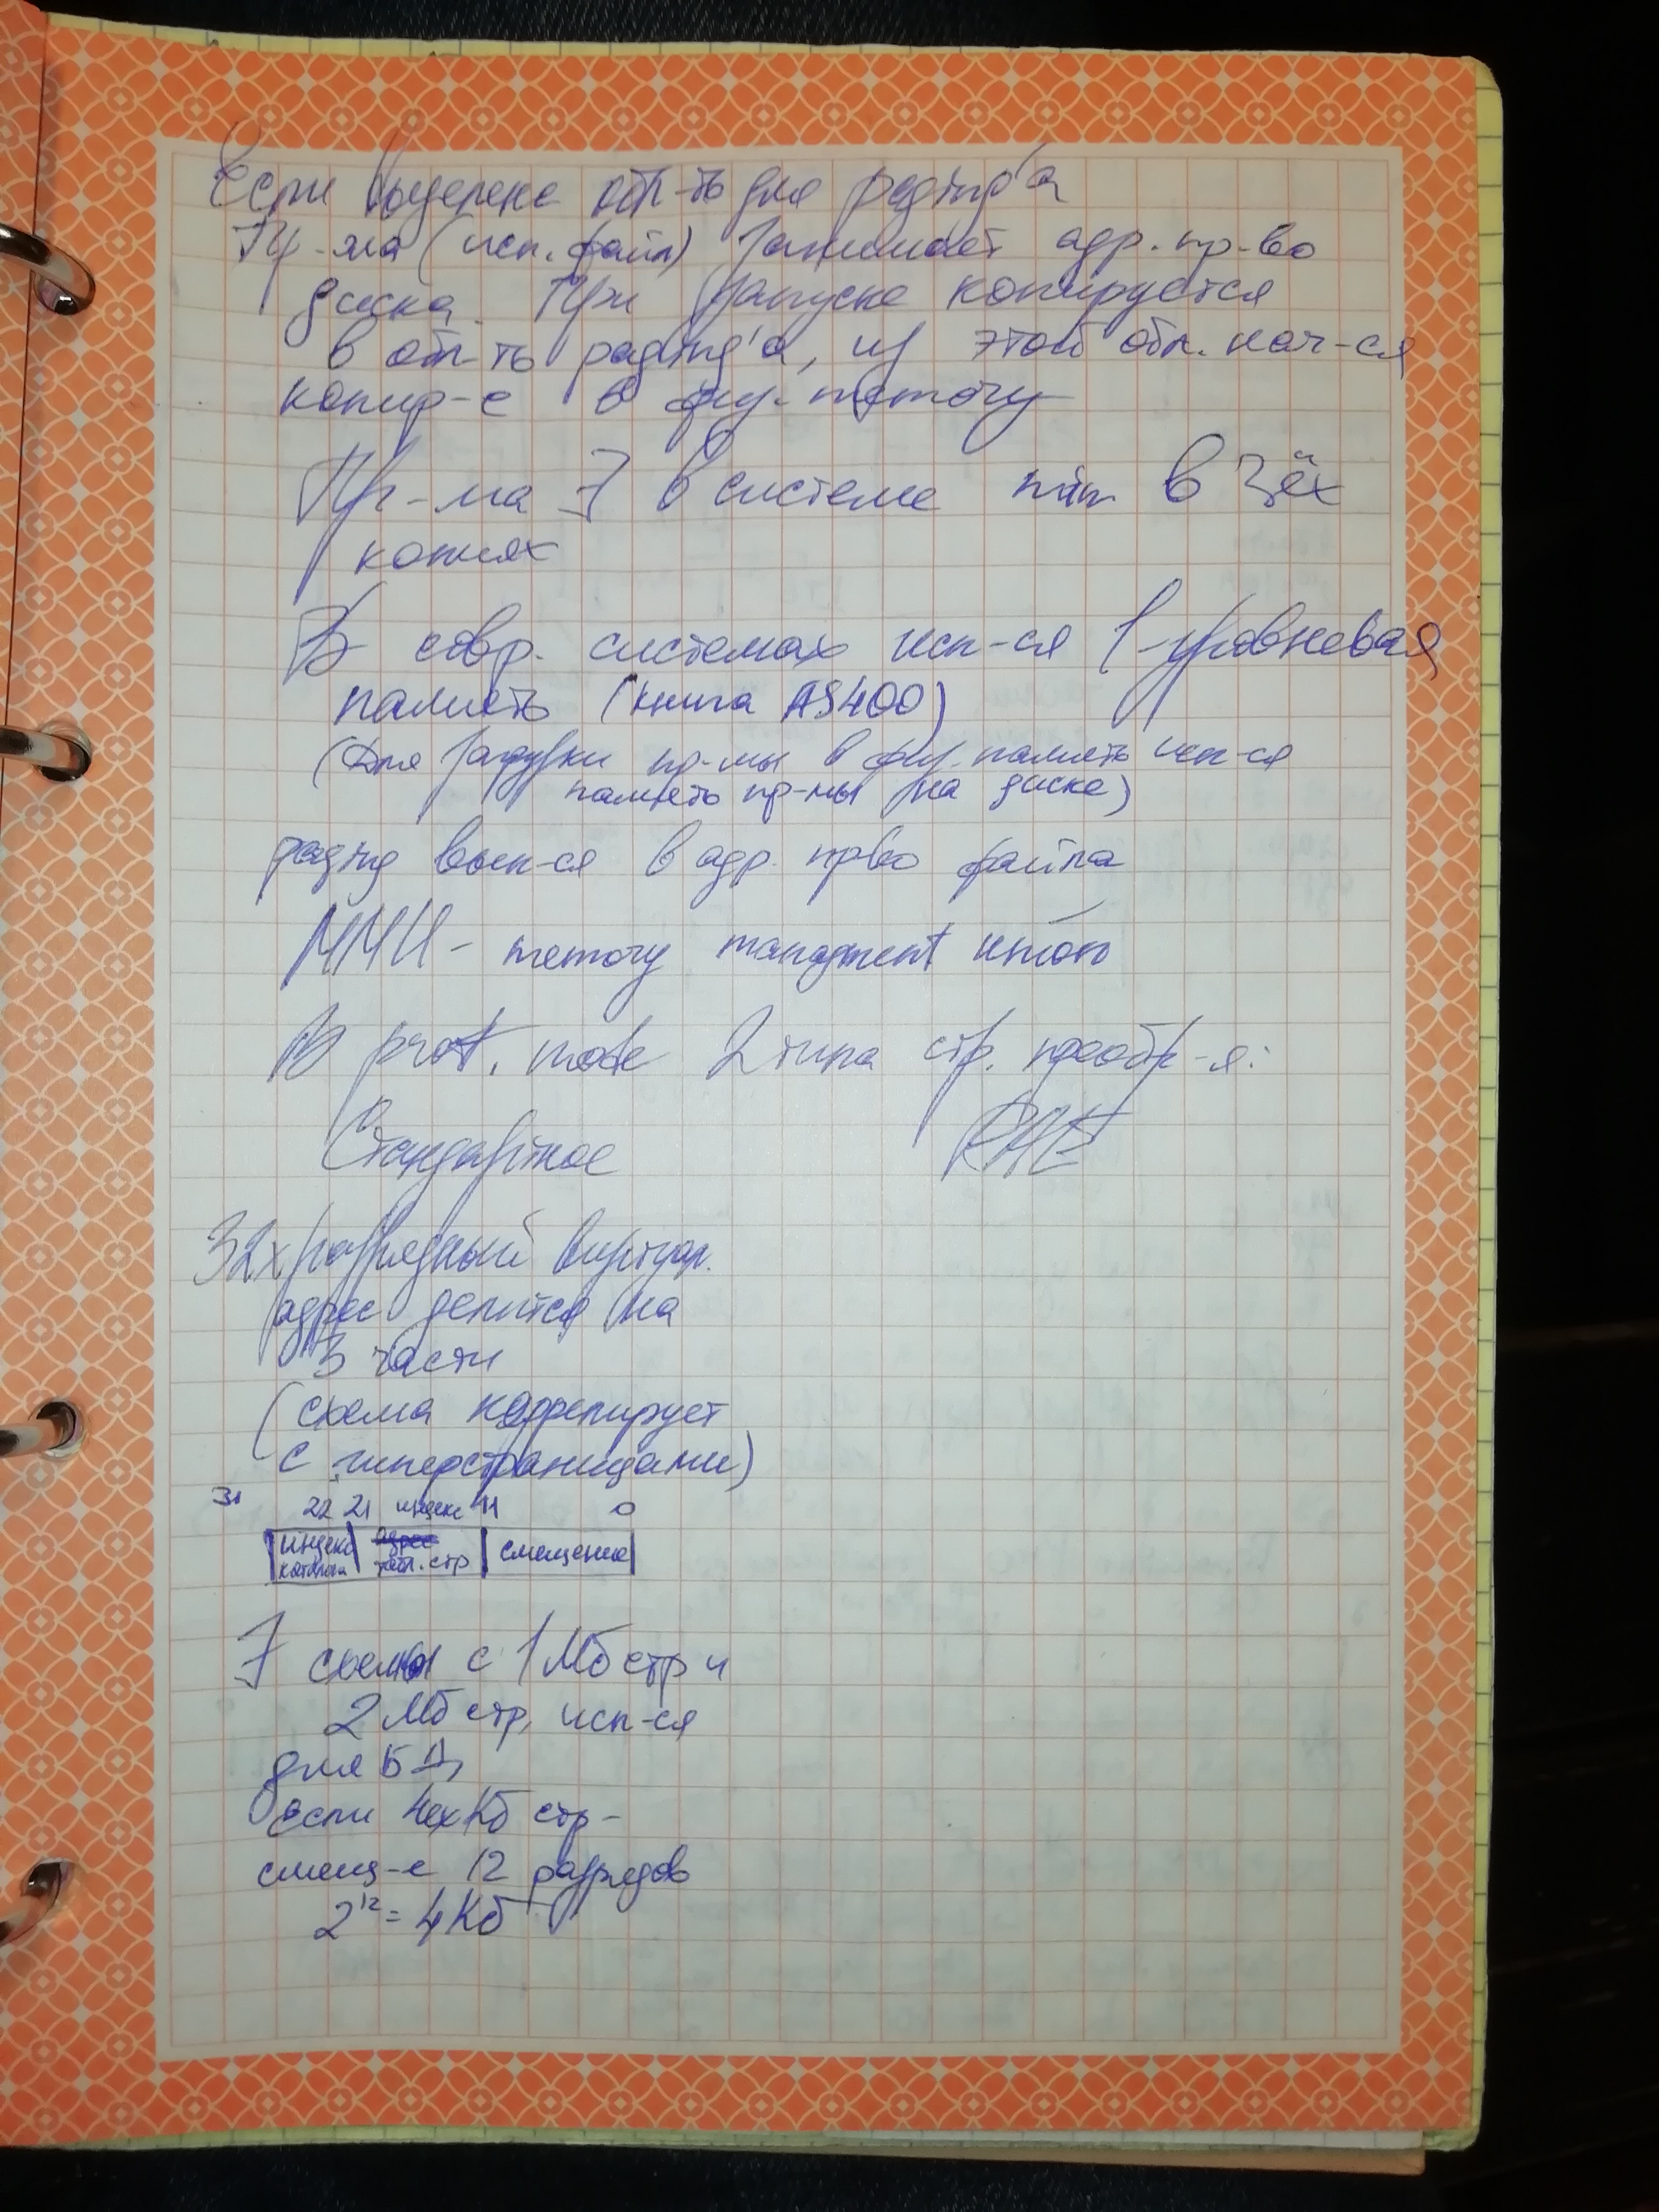 Если выделена обл-ть для paging'а
Пр-ма (исп. файл) занимает адр. пр-во
диска. При запуске копируется
в обл-ть paging'а, из этой обл. нач-ся
копир-е в физ. memory
Пр-ма ∃ в системе min в 3ёх
копиях
В совр. системах исп-ся 1-уровневая
память (книга AS400)
(Для загрузки пр-мы в физ. память исп-ся
память пр-мы на диске)
paging вып-ся в адр. пр-во файла
MMU - memory managment union
В prot. mode 2 типа стр. преобр-я:
Стандартное PAE
32х разрядный виртуал.
адрес делится на
3 части
(схема коррелирует
с гиперстраницами)
31 22 21 индекс 11 0
индекс табл. стр смещение
каталога
∃ схемы с 1 Мб стр и
2 Мб стр, исп-ся
для БД,
Если 4ех Кб стр-
смещ-е 12 разрядов
2¹² = 4 Кб